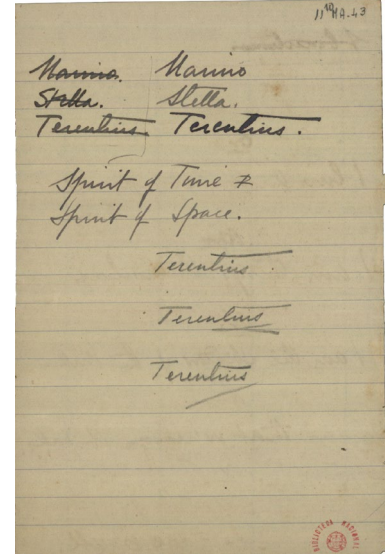 11¹⁰ MA-43
Marino. Marino
Stella. Stella.
Terentius. Terentius.
Spirit of Time &
Spirit of Space.
Terentius.
Terentius
Terentius
BIBLIOTECA NACIONAL